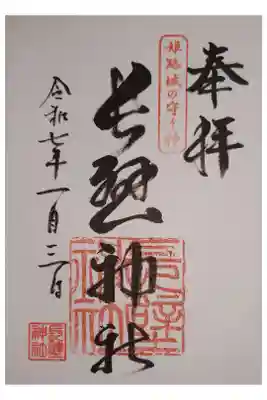 奉拝
姫路城の守り神
長壁神社
令和七年一月三日
長壁
神社